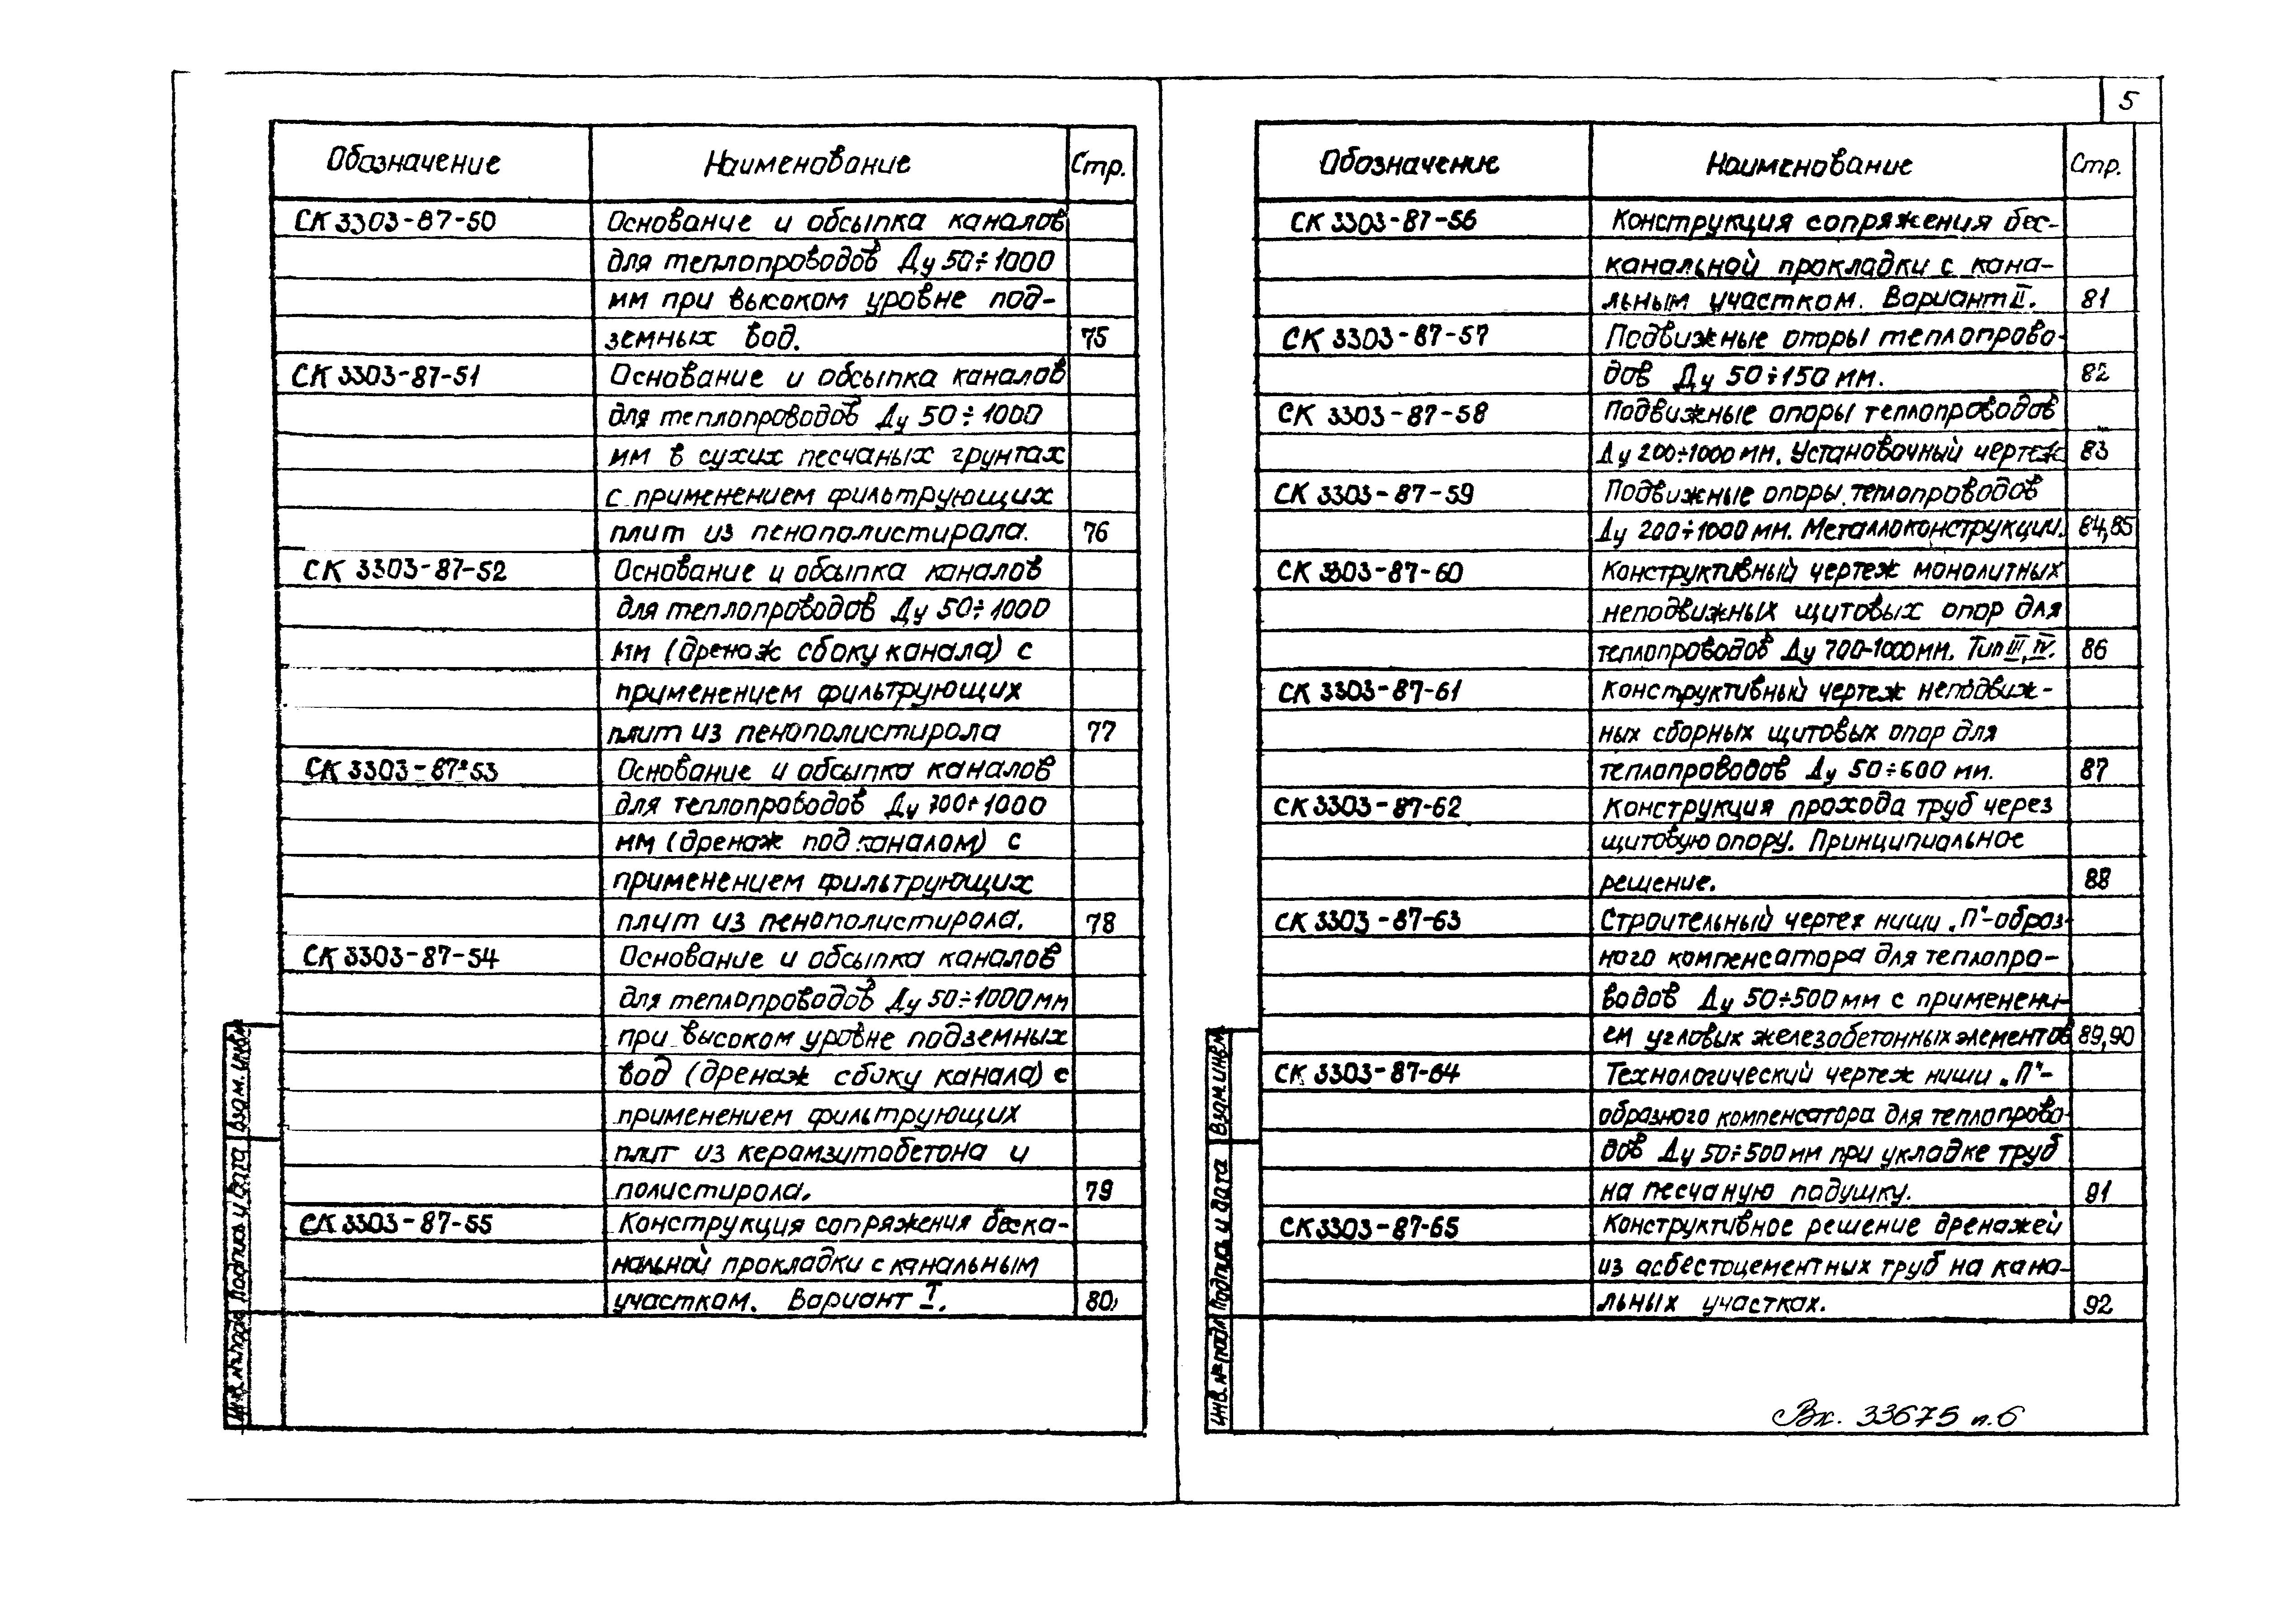 5
Обозначение Наименование Стр.
СК 3303-87-50 Основание и обсыпка каналов
для теплопроводов Ду 50÷1000
мм при высоком уровне под-
земных вод. 75
СК 3303-87-51 Основание и обсыпка каналов
для теплопроводов Ду 50÷1000
мм в сухих песчаных грунтах
с применением фильтрующих
плит из пенополистирола. 76
СК 3303-87-52 Основание и обсыпка каналов
для теплопроводов Ду 50÷1000
мм (дренаж сбоку канала) с
применением фильтрующих
плит из пенополистирола 77
СК 3303-87-53 Основание и обсыпка каналов
для теплопроводов Ду 700÷1000
мм (дренаж под каналом) с
применением фильтрующих
плит из пенополистирола. 78
СК 3303-87-54 Основание и обсыпка каналов
для теплопроводов Ду 50÷1000мм
при высоком уровне подземных
вод (дренаж сбоку канала) с
применением фильтрующих
плит из керамзитобетона и
полистирола. 79
СК 3303-87-55 Конструкция сопряжения беска-
нальной прокладки с канальным
участком. Вариант I. 80
Инв. № подл Подпись и дата Взам. инв.№
Обозначение Наименование Стр.
СК 3303-87-56 Конструкция сопряжения бес-
канальной прокладки с кана-
льным участком. Вариант II. 81
СК 3303-87-57 Подвижные опоры теплопрово-
дов Ду 50÷150 мм. 82
СК 3303-87-58 Подвижные опоры теплопроводов
Ду 200÷1000 мм. Установочный чертеж 83
СК 3303-87-59 Подвижные опоры теплопроводов
Ду 200÷1000 мм. Металлоконструкции. 84,85
СК 3303-87-60 Конструктивный чертеж монолитных
неподвижных щитовых опор для
теплопроводов Ду 700-1000мм. Тип III, IV. 86
СК 3303-87-61 Конструктивный чертеж неподвиж-
ных сборных щитовых опор для
теплопроводов Ду 50÷600 мм. 87
СК 3303-87-62 Конструкция прохода труб через
щитовую опору. Принципиальное
решение. 88
СК 3303-87-63 Строительный чертеж ниши „П"-образ-
ного компенсатора для теплопро-
водов Ду 50÷500 мм с применени-
ем угловых железобетонных элементов 89,90
СК 3303-87-64 Технологический чертеж ниши „П"-
образного компенсатора для теплопрово-
дов Ду 50÷500 мм при укладке труб
на песчаную подушку. 91
СК 3303-87-65 Конструктивное решение дренажей
из асбестоцементных труб на кана-
льных участках. 92
Инв. № подл Подпись и дата Взам.инв.№
Вх. 33675 л.6